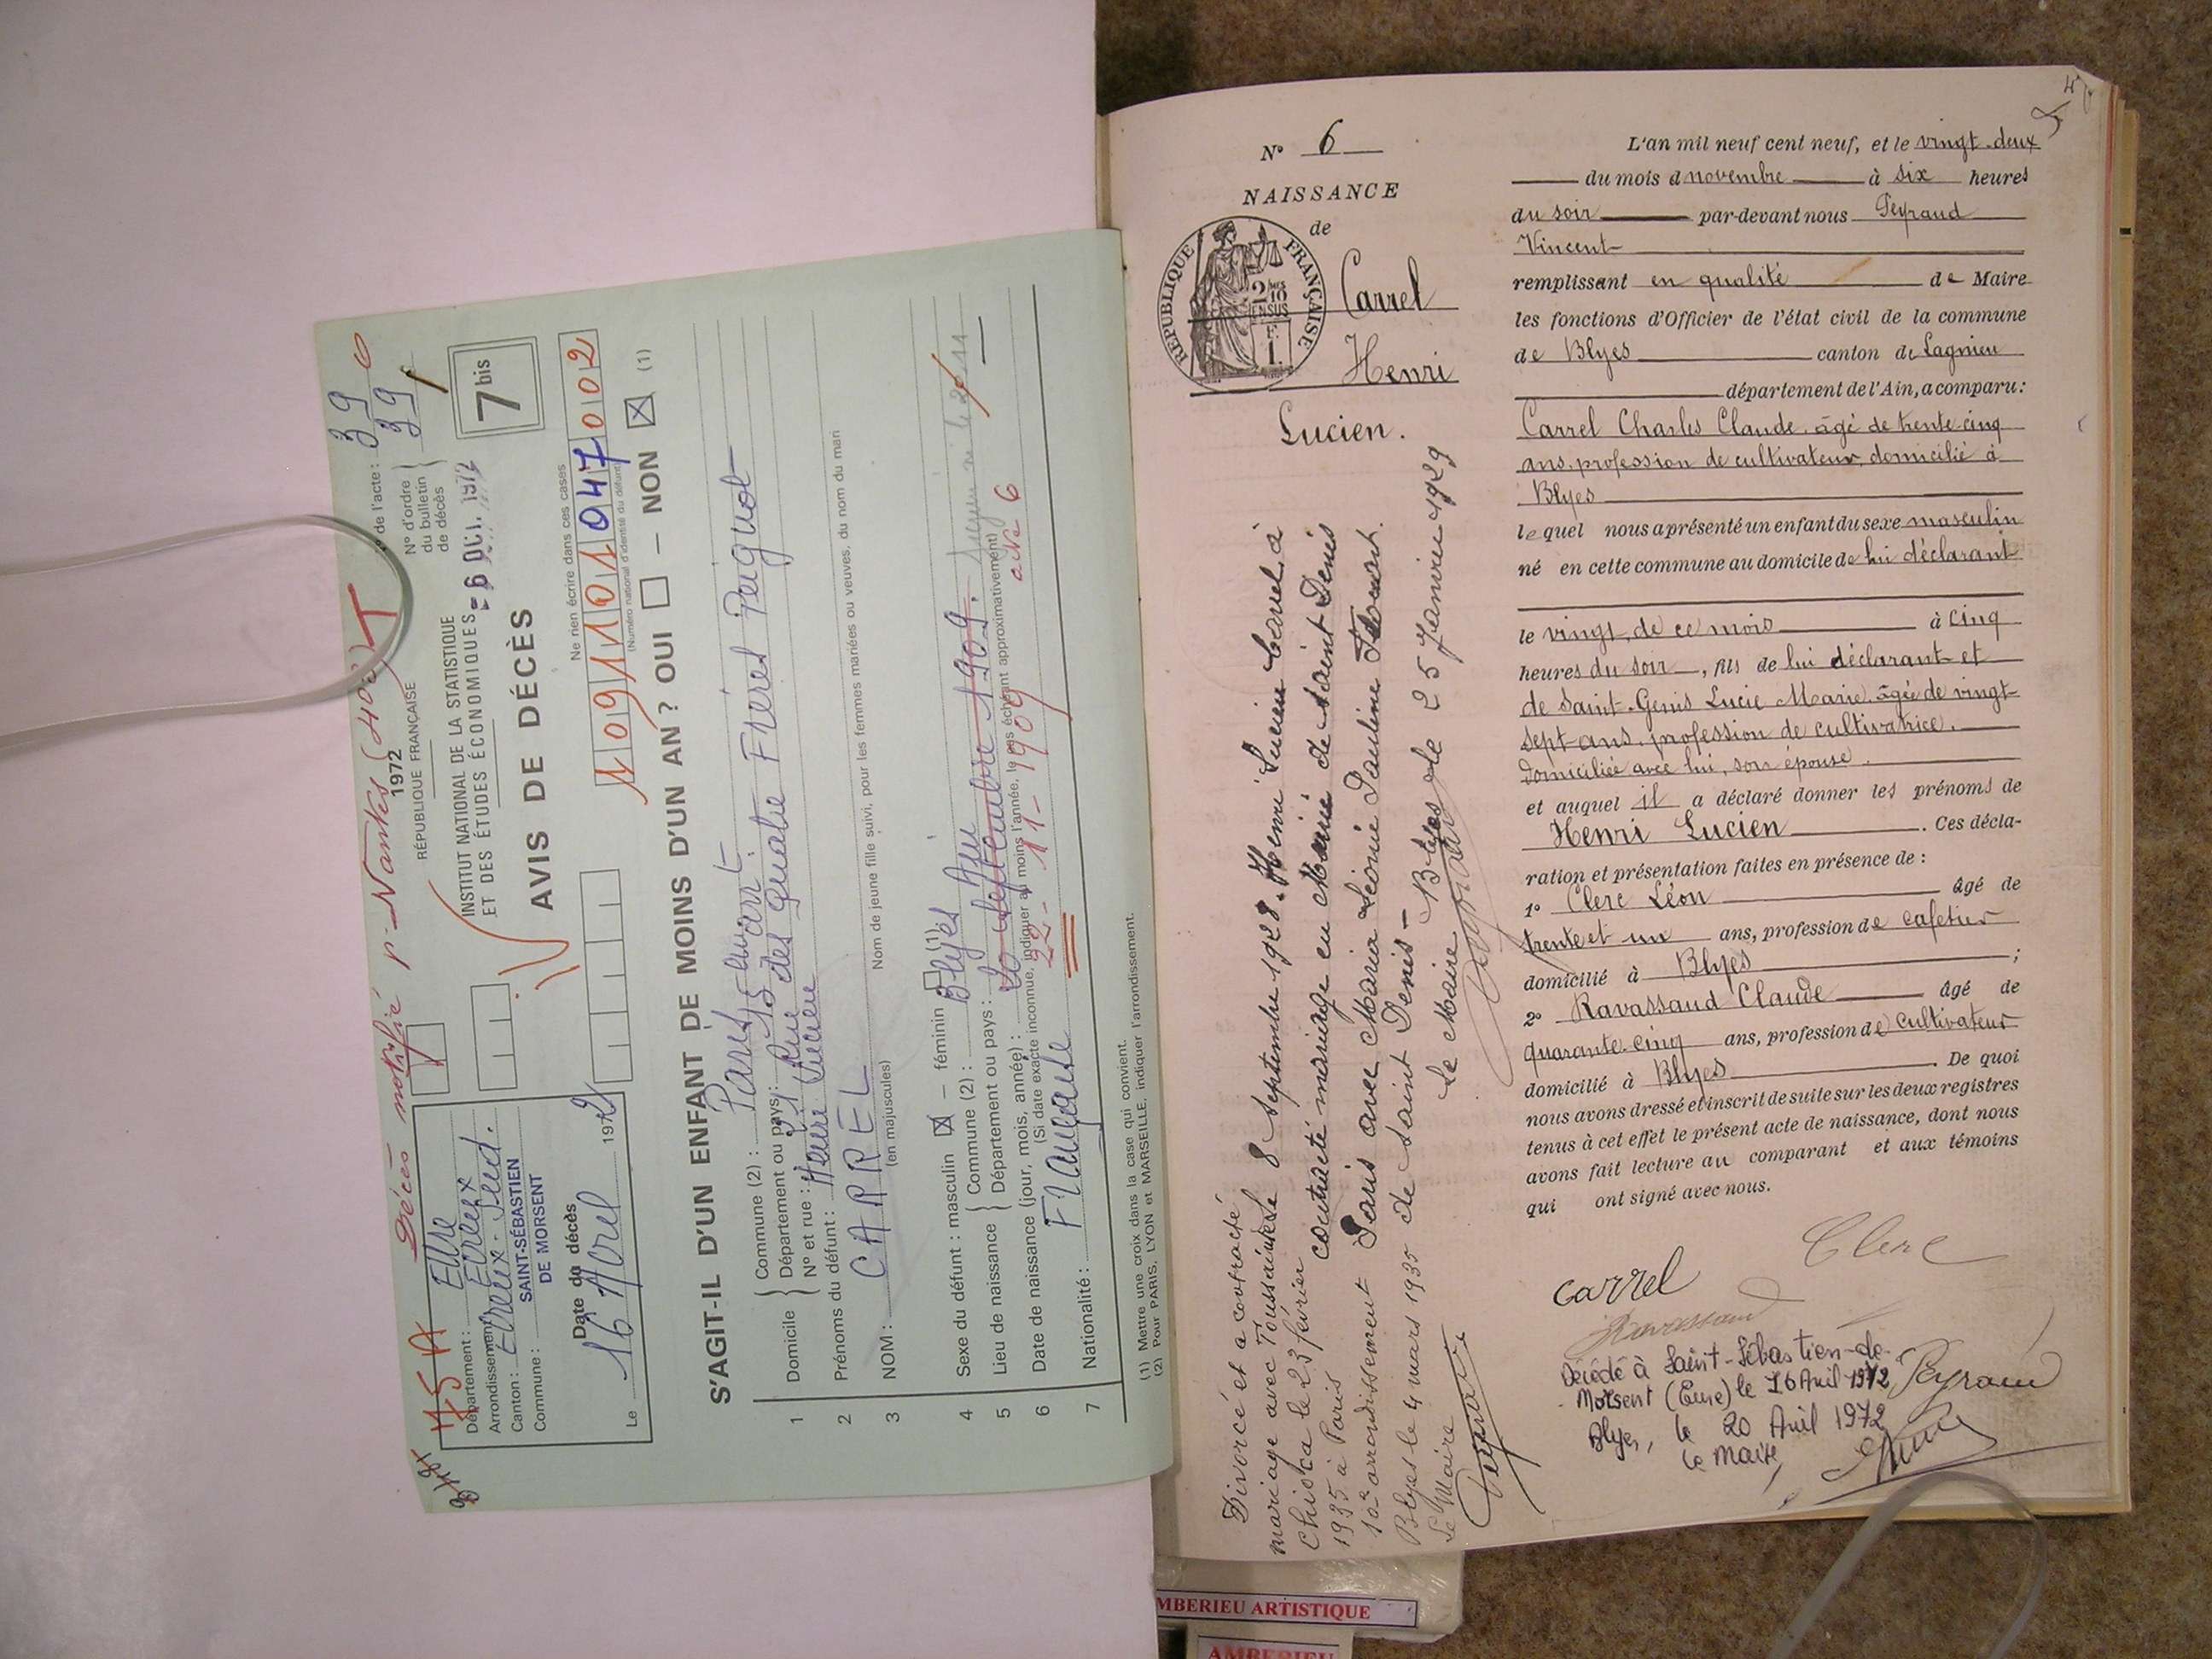 Décès notifié p. Nantes (402)
1972
RÉPUBLIQUE FRANÇAISE
N° de l'acte : 39
N° d'ordre du bulletin de décès } 39
INSTITUT NATIONAL DE LA STATISTIQUE
ET DES ÉTUDES ÉCONOMIQUES
- 6 OCT. 1972
7 bis
AVIS DE DÉCÈS
75 A
Département : Eure
Arrondissement : Evreux
Canton : Evreux-Sud.
Commune : SAINT-SÉBASTIEN
DE MORSENT
Date du décès
Le 16 Avril 1972
Ne rien écrire dans ces cases
1 09 11 01 047 002
(Numéro national d'identité du défunt)
S'AGIT-IL D'UN ENFANT DE MOINS D'UN AN ? OUI – NON (1)
1 Domicile { Commune (2) : Paris
Département ou pays : 15
N° et rue : 21 Rue des Quatre Frères Peignot
2 Prénoms du défunt : Henri Lucien
3 NOM : CARREL
(en majuscules)
Nom de jeune fille suivi, pour les femmes mariées ou veuves, du nom du mari
4 Sexe du défunt : masculin – féminin (1)
5 Lieu de naissance { Commune (2) : Blyes
Département ou pays : Ain
6 Date de naissance (jour, mois, année) : 20 Septembre 1909.
(Si date exacte inconnue, indiquer au moins l'année, le cas échéant approximativement)
22 - 11 - 1909 acte 6
7 Nationalité : Française
(1) Mettre une croix dans la case qui convient.
(2) Pour PARIS, LYON et MARSEILLE, indiquer l'arrondissement.
N° 6
NAISSANCE
de
Carrel
Henri
Lucien.
RÉPUBLIQUE FRANÇAISE
8 Septembre 1928. Henri Lucien Carrel, a
contracté mariage en Mairie de Saint Denis
avec Maria Léonie Pauline
de Saint Denis - Blyes le 25 Janvier 1929
Le Maire
Divorcé et a contracté
mariage avec Toussainte
Chiocca le 23 février
1935 à Paris
12e arrondissement Paris
Blyes le 4 mars 1935
Le Maire
Peyraud
L'an mil neuf cent neuf, et le vingt-deux
du mois d novembre à six heures
du soir par-devant nous Peyraud
Vincent
remplissant en qualité de Maire
les fonctions d'Officier de l'état civil de la commune
de Blyes canton de Lagnieu
département de l'Ain, a comparu :
Carrel Charles Claude, âgé de trente cinq
ans, profession de cultivateur, domicilié à
Blyes
lequel nous a présenté un enfant du sexe masculin
né en cette commune au domicile de lui déclarant
le vingt, de ce mois à cinq
heures du soir, fils de lui déclarant et
de Saint-Genis Lucie Marie, âgée de vingt-
sept ans, profession de cultivatrice,
domiciliée avec lui, son épouse.
et auquel il a déclaré donner les prénoms de
Henri Lucien. Ces décla-
ration et présentation faites en présence de :
1° Clerc Léon âgé de
trente et un ans, profession de cafetier
domicilié à Blyes ;
2° Ravassaud Claude âgé de
quarante-cinq ans, profession de cultivateur
domicilié à Blyes. De quoi
nous avons dressé et inscrit de suite sur les deux registres
tenus à cet effet le présent acte de naissance, dont nous
avons fait lecture au comparant et aux témoins
qui ont signé avec nous.
Carrel
Clerc
Ravassaud
Peyraud
Décédé à Saint-Sébastien-de-
Morsent (Eure) le 16 Avril 1972
Blyes, le 20 Avril 1972
Le Maire,
MBERIEU ARTISTIQUE
AMBERIEU